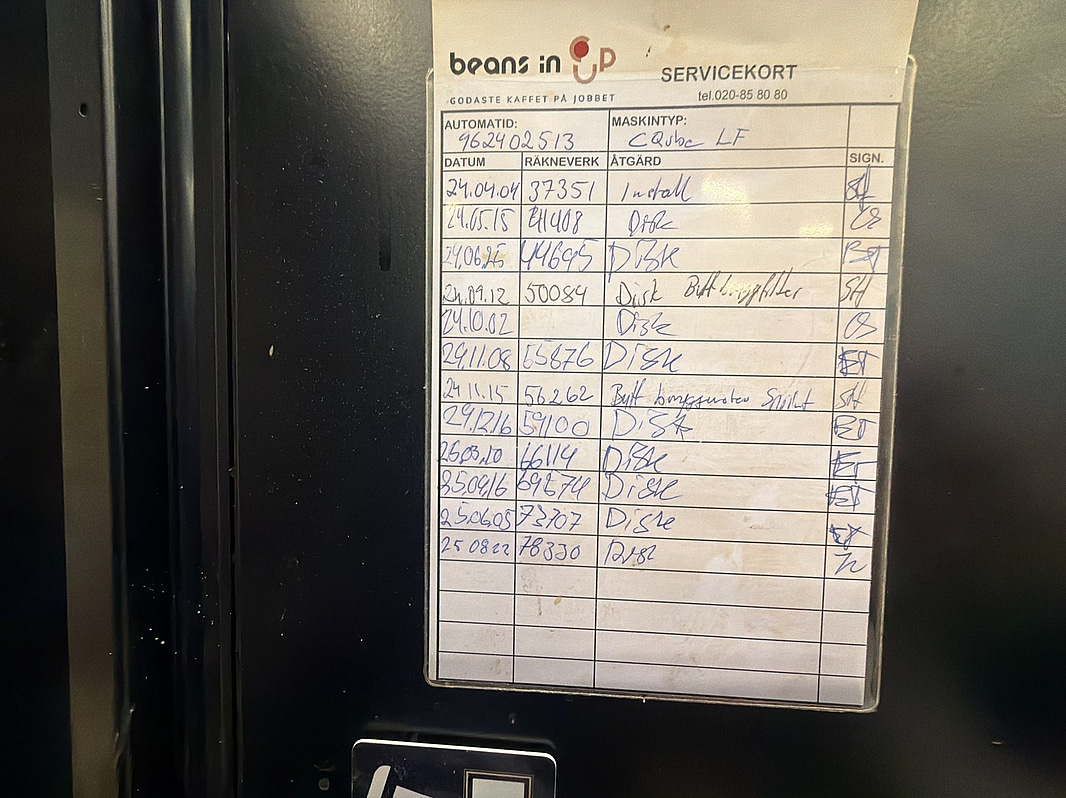 beans in UP
GODASTE KAFFET PÅ JOBBET
SERVICEKORT
tel.020-85 80 80
AUTOMATID: MASKINTYP:
962402513 CQube LF
DATUM RÄKNEVERK ÅTGÄRD SIGN.
24.04.04 37351 Install SH
24.05.15 41408 Disk CS
24.06.25 44695 Disk ET
24.09.12 50084 Disk Bytt SH
24.10.02 Disk CS
24.11.08 55876 Disk ET
24.11.15 56262 Bytt SH
24.12.16 59100 Disk ET
25.03.10 66114 Disk ET
25.04.16 69574 Disk ET
25.06.05 73707 Disk ET
25 08 22 78330 Disk